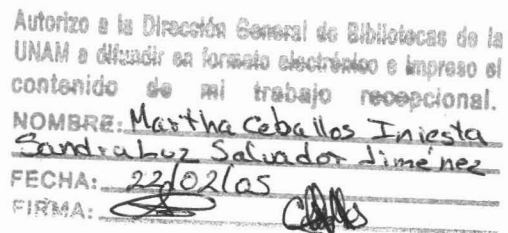 Autorizo a la Dirección General de Bibliotecas de la
UNAM a difundir en formato electrónico e impreso el
contenido de mi trabajo recepcional.
NOMBRE: Martha Ceballos Iniesta
Sandra Luz Salvador Jiménez
FECHA: 22/02/05
FIRMA: